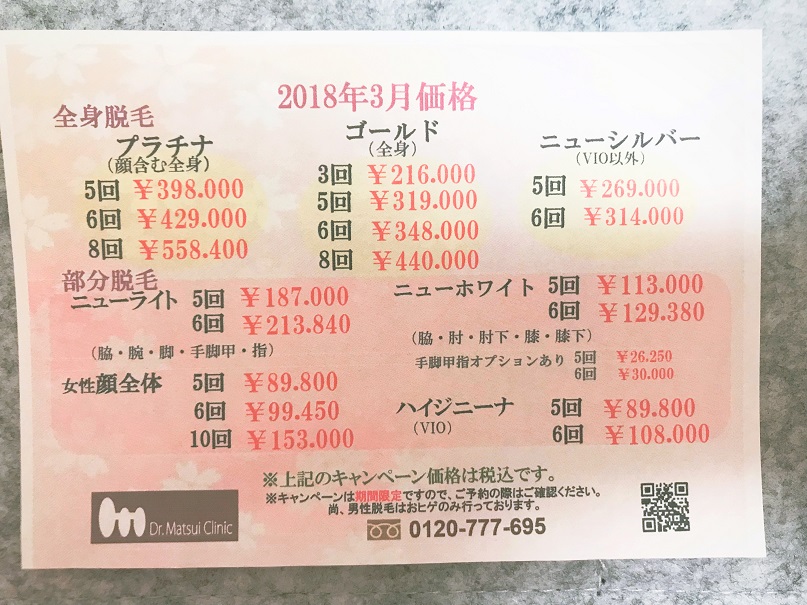 2018年3月価格
全身脱毛
プラチナ
(顔含む全身)
5回 ￥398.000
6回 ￥429.000
8回 ￥558.400
ゴールド
(全身)
3回 ￥216.000
5回 ￥319.000
6回 ￥348.000
8回 ￥440.000
ニューシルバー
(VIO以外)
5回 ￥269.000
6回 ￥314.000
部分脱毛
ニューライト 5回 ￥187.000
6回 ￥213.840
(脇・腕・脚・手脚甲・指)
女性顔全体 5回 ￥89.800
6回 ￥99.450
10回 ￥153.000
ニューホワイト 5回 ￥113.000
6回 ￥129.380
(脇・肘・肘下・膝・膝下)
手脚甲指オプションあり 5回 ￥26.250
6回 ￥30.000
ハイジニーナ 5回 ￥89.800
(VIO) 6回 ￥108.000
※上記のキャンペーン価格は税込です。
※キャンペーンは期間限定ですので、ご予約の際はご確認ください。
尚、男性脱毛はおヒゲのみ行っております。
Dr.Matsui Clinic
0120-777-695